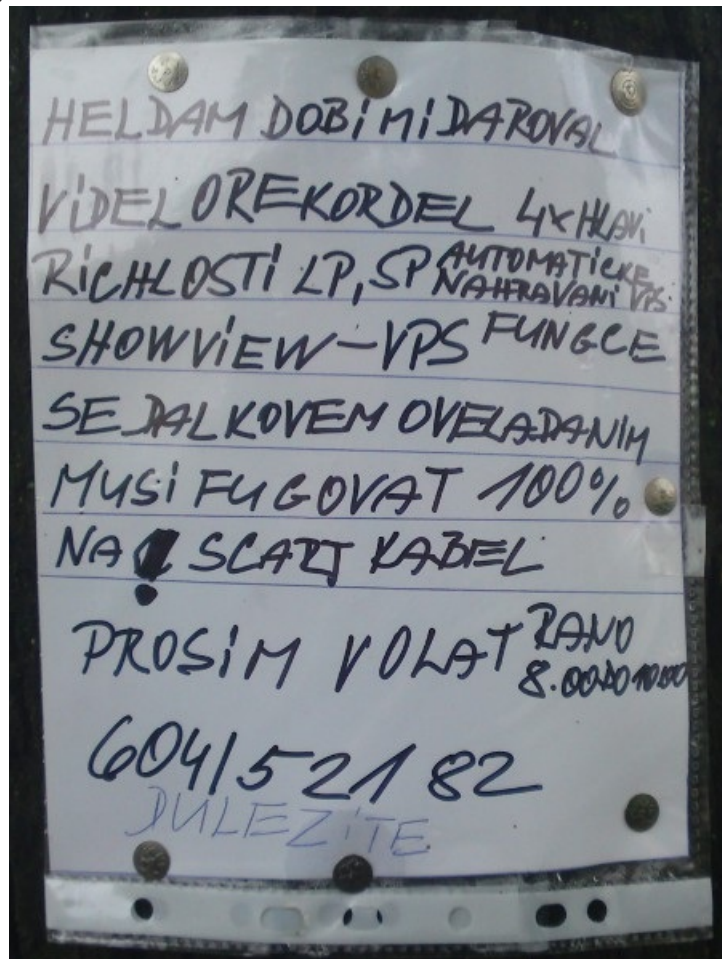 HELDAM DOBi MiDAROVAL
ViDEL OREKORDEL 4x HLAVi
RiCHLOSTi LP, SP AUTOMATiCKE
NAHRAVANi VPS
SHOWViEW-VPS FUNGCE
SE DALKOVEM OVELADANiM
MUSi FUGOVAT 100%
NA SCART KABEL
PROSiM VOLAT RANO
8.00 DO 10.00
604/521 82
DULEZiTE